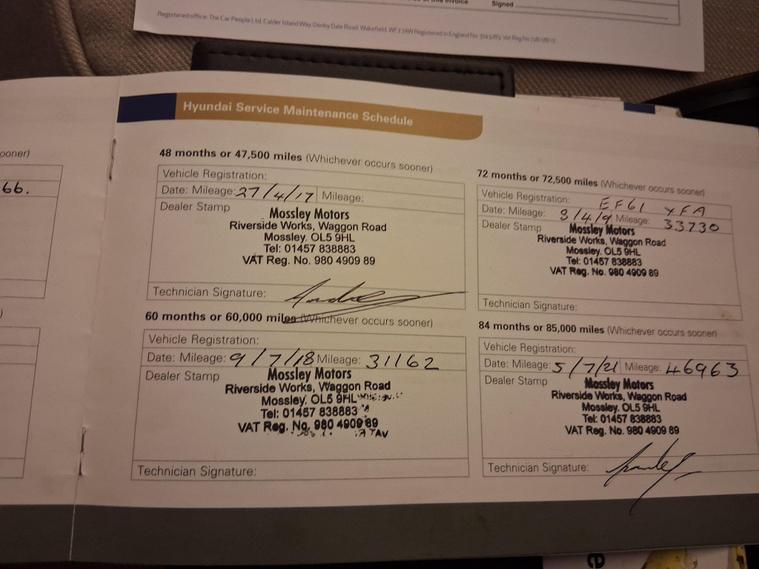 Signed
Registered office: The Car People Ltd. Calder Island Way, Denby Dale Road, Wakefield, WF2 7AW Registered in England No:
Hyundai Service Maintenance Schedule
ooner)
66.
)
48 months or 47,500 miles (Whichever occurs sooner)
Vehicle Registration:
Date: Mileage: 27/4/17 Mileage:
Dealer Stamp
Mossley Motors
Riverside Works, Waggon Road
Mossley. OL5 9HL
Tel: 01457 838883
VAT Reg. No. 980 4909 89
Technician Signature:
60 months or 60,000 miles (Whichever occurs sooner)
Vehicle Registration:
Date: Mileage: 9/7/18 Mileage: 31162
Dealer Stamp
Mossley Motors
Riverside Works, Waggon Road
Mossley. OL5 9HL
Tel: 01457 838883
VAT Reg. No. 980 4909 89
Technician Signature:
72 months or 72,500 miles (Whichever occurs sooner)
Vehicle Registration: EF61 YFA
Date: Mileage: 3/4/9 Mileage: 33730
Dealer Stamp
Mossley Motors
Riverside Works, Waggon Road
Mossley. OL5 9HL
Tel: 01457 838883
VAT Reg. No. 980 4909 89
Technician Signature:
84 months or 85,000 miles (Whichever occurs sooner)
Vehicle Registration:
Date: Mileage: 5/7/21 Mileage: 46963
Dealer Stamp
Mossley Motors
Riverside Works, Waggon Road
Mossley. OL5 9HL
Tel: 01457 838883
VAT Reg. No. 980 4909 89
Technician Signature:
e